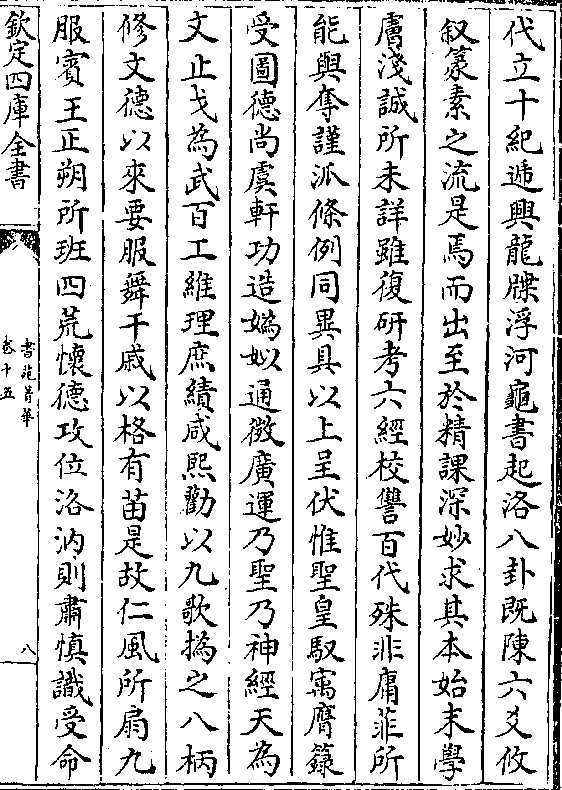 代立十紀遞興龍牒浮河龜書起洛八卦既陳六爻攸
叙篆素之流是焉而出至於精課深妙求其本始末學
膚淺誠所未詳雖復研考六經校讐百代殊非庸菲所
能與奪謹泒條例同異具以上呈伏惟聖皇馭寓膺籙
受圖德尚虞軒功造嬀姒通微廣運乃聖乃神經天為
文止戈為武百工維理庶績咸熙勸以九歌撝之八柄
修文德以來要服舞干戚以格有苗是故仁風所扇九
服賓王正朔所班四荒懷德攻位洛汭則肅慎識受命
欽定四庫全書
書苑菁華
卷十五
八